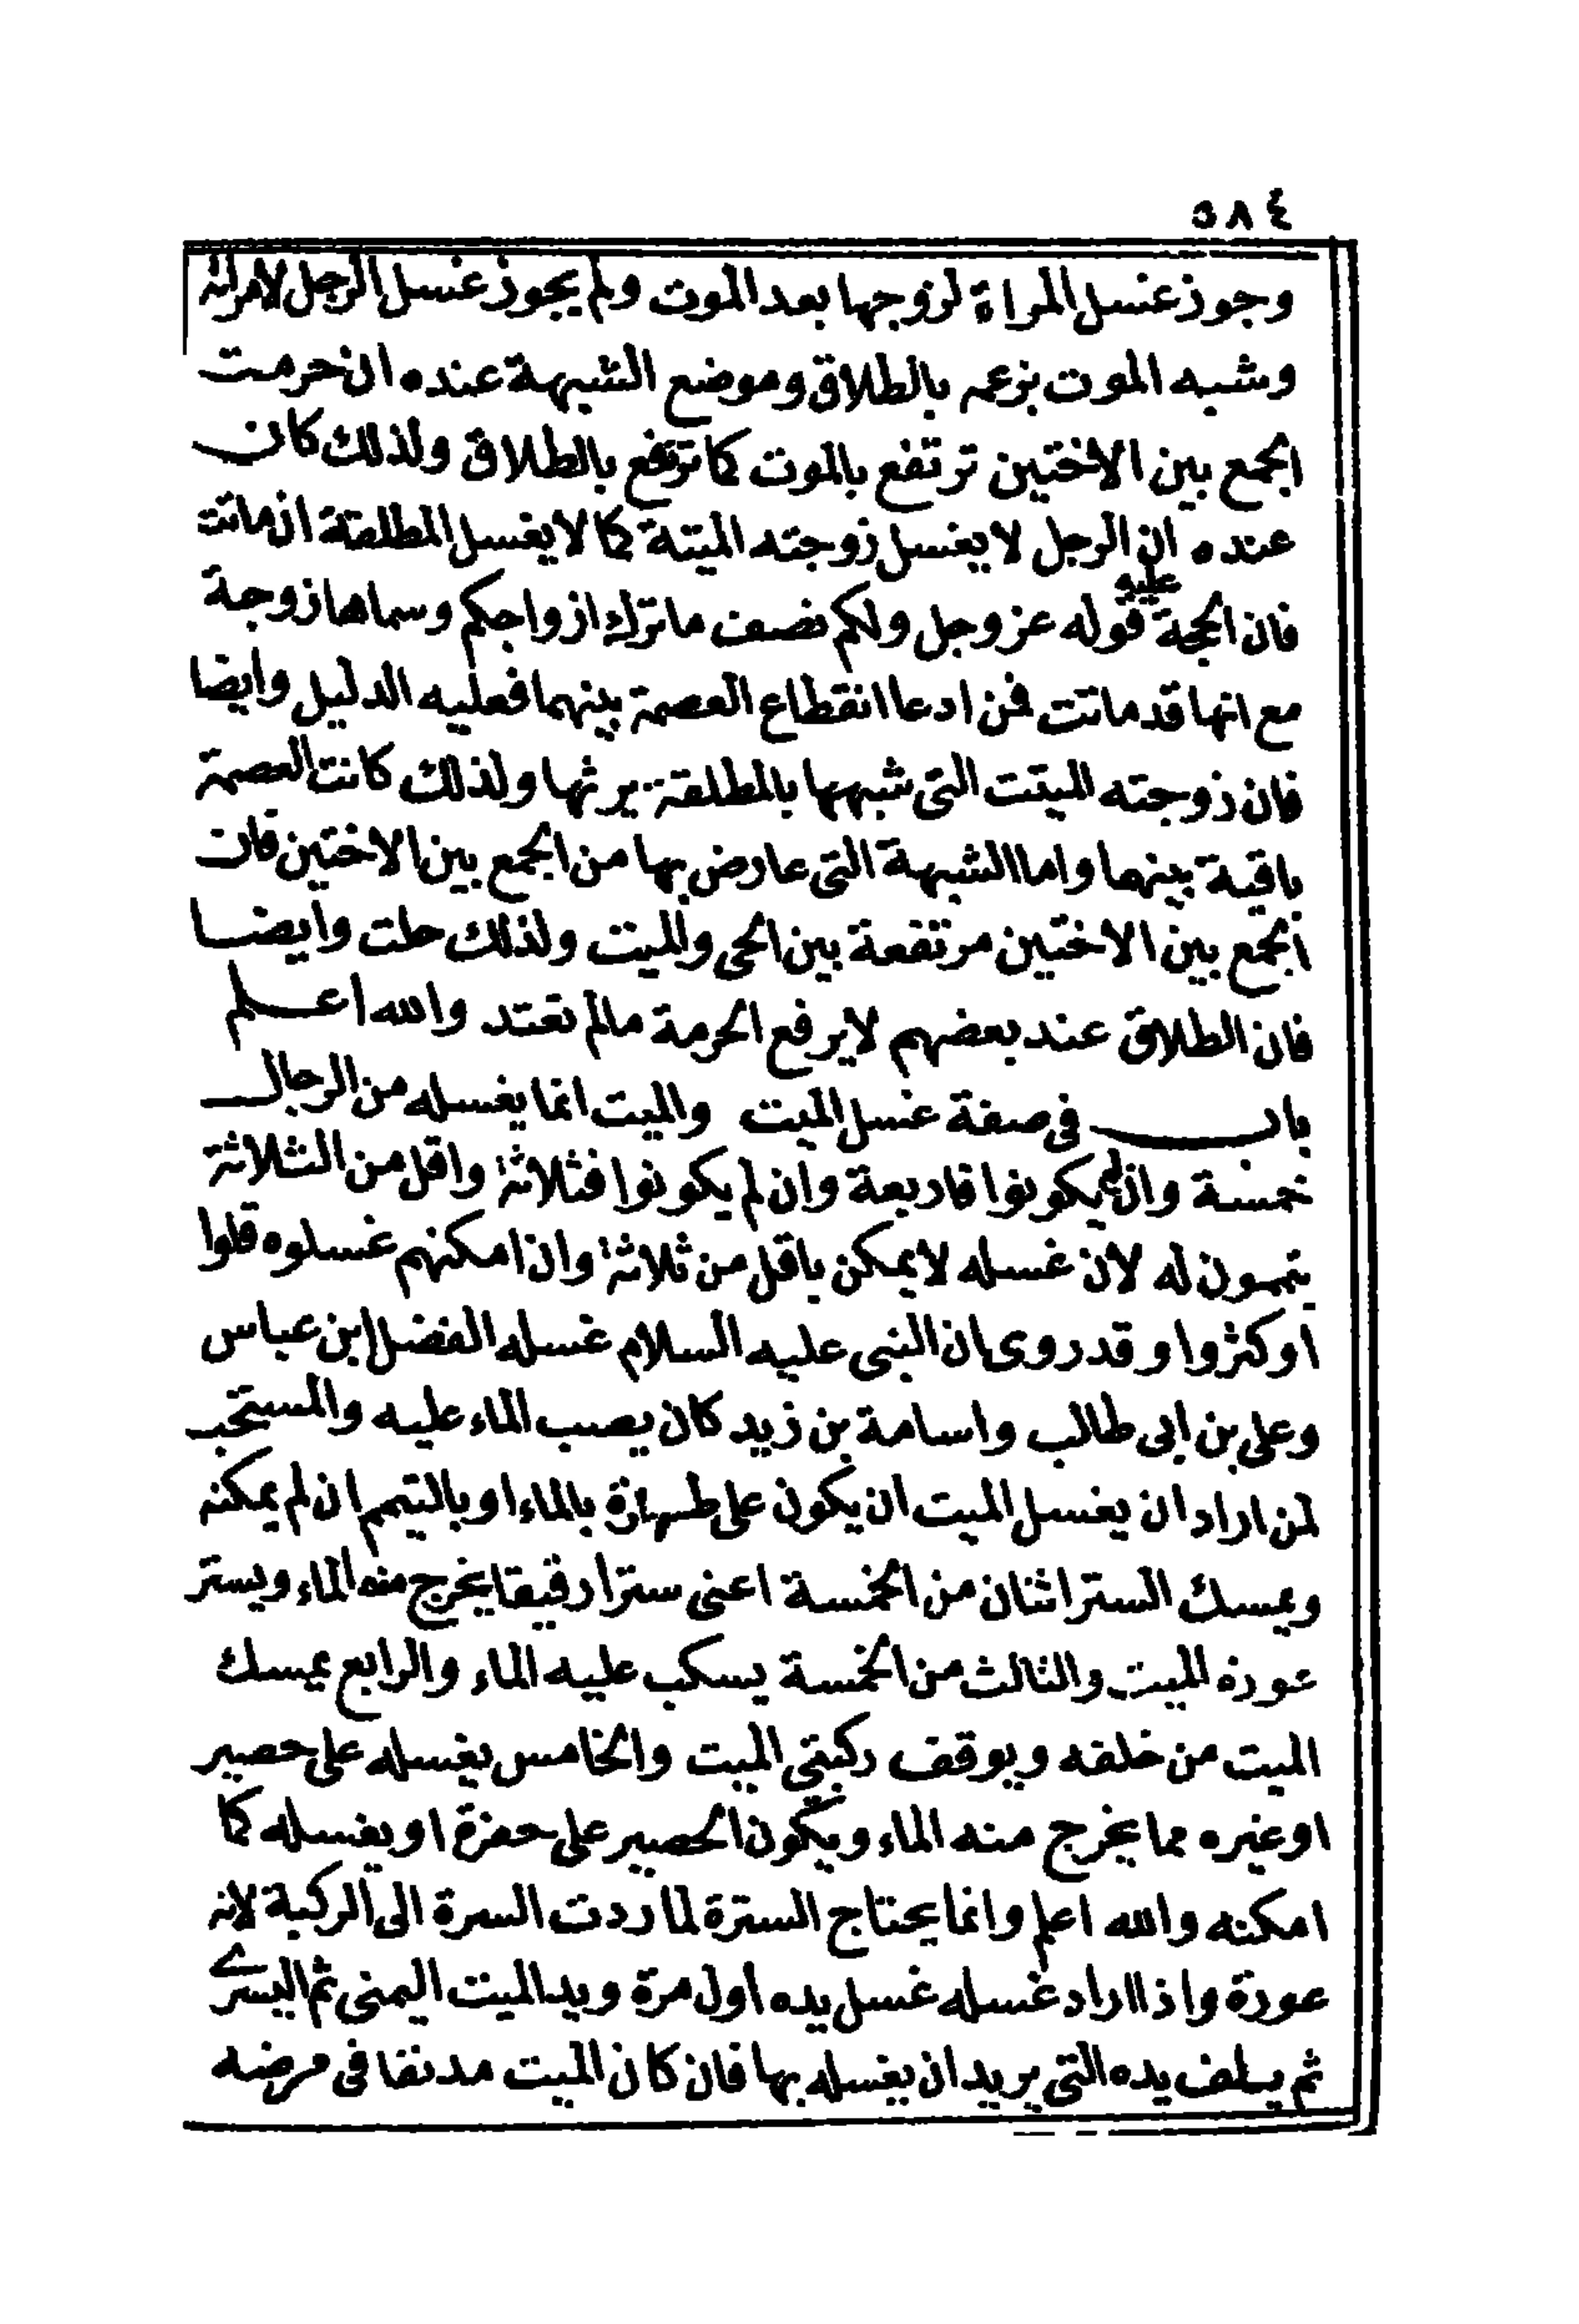 ٥٨٤
وجوز غسل المراة لزوجها بعد الموت ولم يجوز غسل الرجل لامراته
وشبه الموت بزعمه بالطلاق وموضع الشبهة عنده ان حرمت
الجمع بين الاختين ترتفع بالموت كما ترتفع بالطلاق ولذلك كان
عنده ان الرجل لا يغسل زوجته الميتة كما لا يغسل المطلقة اذ ماتت
فان الحجة عليه قوله عز وجل ولكم نصف ما ترك ازواجكم وسماها زوجة
مع انها قد ماتت فمن ادعا انقطاع العصمة بينهما فعليه الدليل وايضا
فان زوجته الميتت التى شبهها بالمطلقة يرثها ولذلك كانت العصمة
باقية بينهما واما الشبهة التى عارض بها من الجمع بين الاختين فان
الجمع بين الاختين مرتفعة بين الحى والميت ولذلك حلت وايضا
فان الطلاق عند بعضهم لا يرفع الحرمة مالم تعتد والله اعلم
باب فى صفة غسل الميت والميت انما يغسله من الرجال
خمسة وان لم يكونوا فاربعة وان لم يكونوا فثلاثة واقل من الثلاثة
يتيممون له لان غسله لا يمكن باقل من ثلاثة وان امكنهم غسلوه قلوا
او كثروا وقد روى ان النبى عليه السلام غسله الفضل ابن عباس
وعلى بن ابى طالب واسامة بن زيد كان يصب الماء عليه والمستحب
لمن اراد ان يغسل الميت ان يكون على طهارة بالماء او بالتيمم ان لم يمكنه
ويمسك الستر اثنان من الخمسة اعنى سترا رقيقا يخرج منه الماء ويستر
عورة الميت والثالث من الخمسة يسكب عليه الماء والرابع يمسك
الميت من خلفه ويوقف ركبتي الميت والخامس يغسله على حصير
او غيره مما يخرج منه الماء ويكون الحصير على حفرة او يغسله كما
امكنه والله اعلم وانما يحتاج السترة لما ردت السرة الى الركبة لانه
عورة واذا اراد غسله غسل يده اول مرة ويد الميت اليمنى ثم اليسرى
ثم يلف يده التي يريد ان يغسله بها فان كان الميت مدنفا فى مرضه